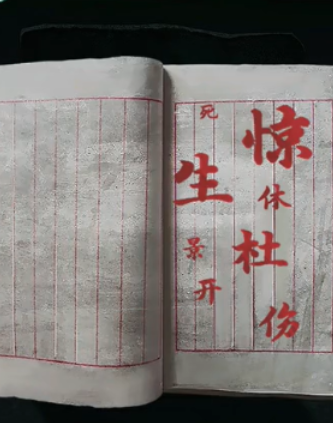 惊
休
杜
伤
死
生
景
开